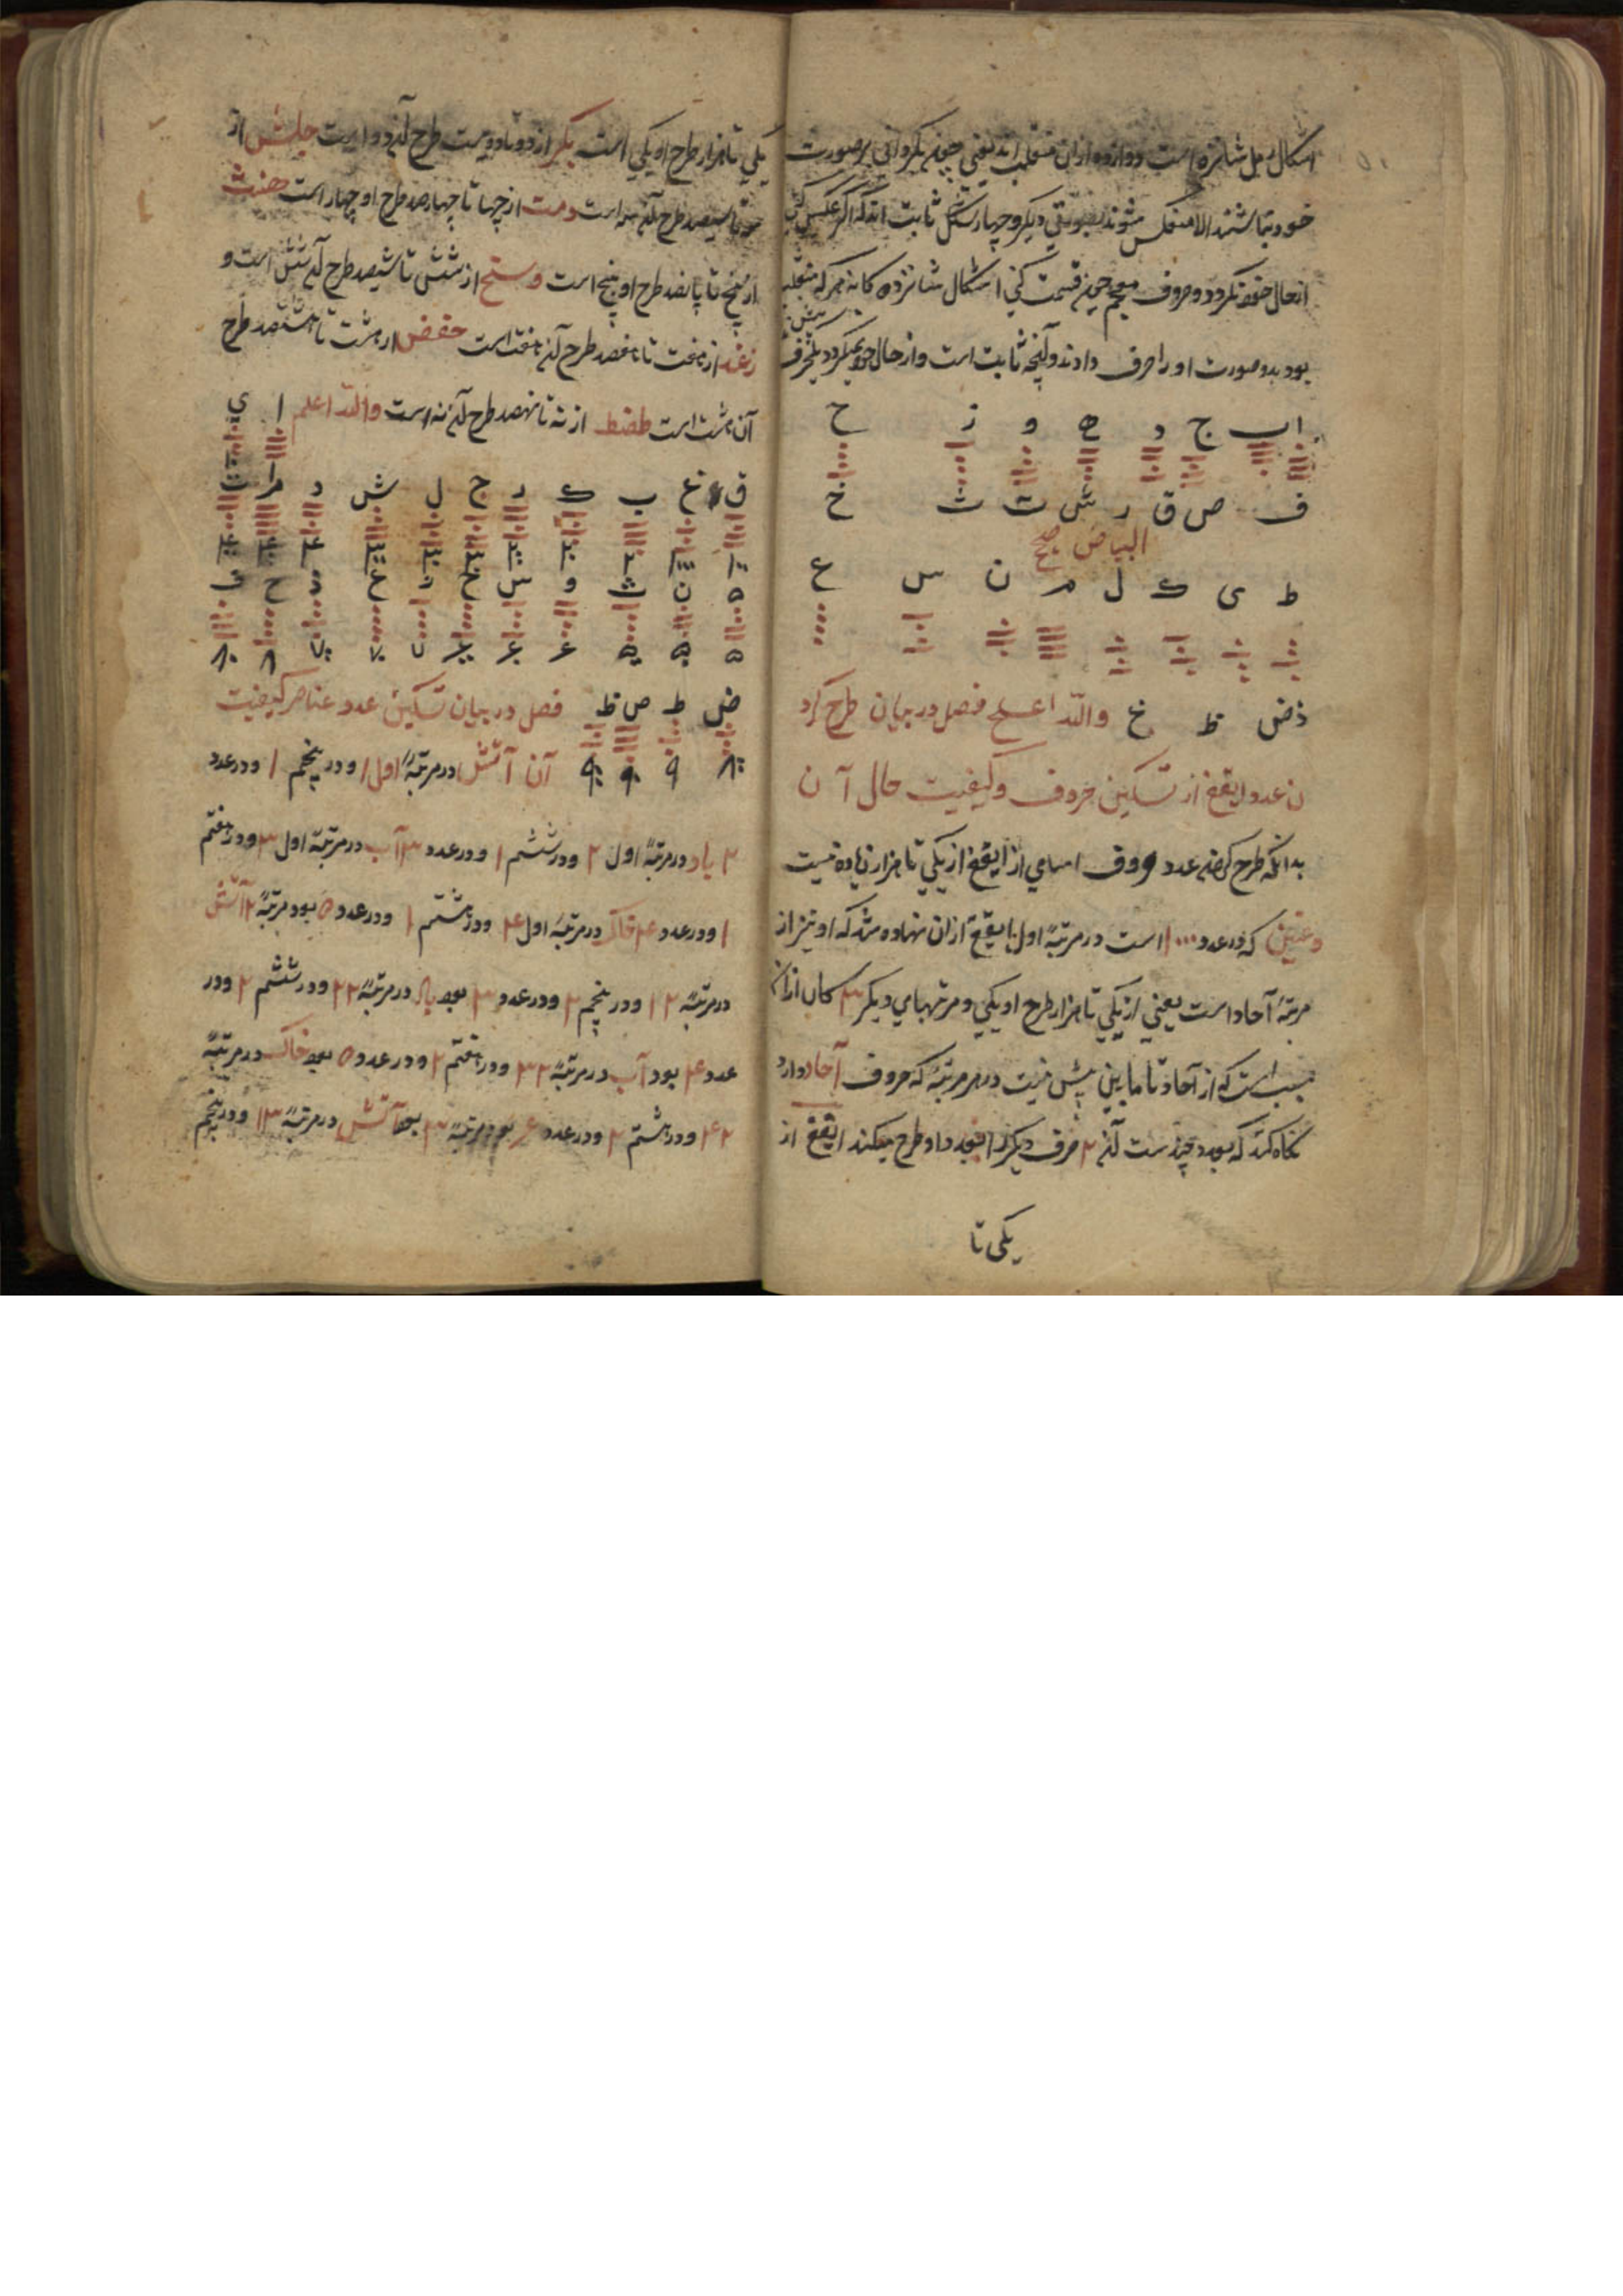 اشکال رمل شانزده است دوازده ازان منقلب اند یعنی چونکه بگردانی بر صورت
خود نباشند الا منعکس شوند بصورتی دیگر و چهار شکل ثابت اند که اگر عکس کنی
از حال خود نگردد و حروف معجم چون قسمت کنی اشکال شانزده کانه هر که منقلب
بود بدو صورت او را حرف دادند و آنچه ثابت است و از حال خود نمیگردد یکحرف
ا ب ج د ه و ز ح
ف ص ق ر ش ت ث خ
البیاض صح
ط ی ک ل م ن س ع
ذ ض ظ غ والله اعلم فصل در بیان طرح کرد
ن عدد ایقغ از تسکین حروف و کیفیت حال آن
بدانکه طرح کردن عدد حروف اسامی از ایقغ از یکی تا هزار زیاده نیست
وغین که در عدد ۱۰۰۰ است در مرتبهٔ اول ایقغ ازان نهاده شد که او نیز از
مرتبهٔ آحاد است یعنی از یکی تا هزار طرح او یکی و مرتبهای دیگر ۳ کان ازان
سبب است که از آحاد تا مابین بیش نیست در هر مرتبهٔ که حروف آحاد دارد
نگاه کند که بعدد چند ست آن ۲ حرف دیگر را بعدد داد و طرح میکند ایقغ از
یکی تا
یکی تا هزار طرح او یکی است بکر از دو تا دویست طرح آن دو است جلش از
سه تا سیصد طرح آن سه است دمت از چهار تا چهارصد طرح او چهار است هنث
از پنج تا پانصد طرح او پنج است وسخ از شش تا ششصد طرح آن شش است و
زعذ از هفت تا هفصد طرح آن هفت است حفض از هشت تا هشتصد طرح
آن هشت است طصظ از نه تا نهصد طرح آن نه است والله اعلم ا ی
ق غ ب ک ر ج ل ش د م ت
ه ن ث و س خ ز ع ذ ح ف
ض ط ص ظ فصل در بیان تسکین عدد عناصر کیفیت
آن آتش در مرتبهٔ اول ۱ و در پنجم ۱ و در عدد
۲ باد در مرتبهٔ اول ۲ و در ششم ۱ و در عدد ۳ آب در مرتبهٔ اول ۳ و در هفتم
۱ و در عدد ۴ خاک در مرتبهٔ اول ۴ و در هشتم ۱ و در عدد ۵ بود مرتبهٔ ۲ آتش
در مرتبهٔ ۲ ۱ و در پنجم ۲ و در عدد ۳ بود باد در مرتبهٔ ۲ ۲ و در ششم ۲ و در
عدد ۴ بود آب در مرتبهٔ ۲ ۳ و در هفتم ۲ و در عدد ۵ بود خاک در مرتبهٔ
۲ ۴ و در هشتم ۲ و در عدد بود مرتبهٔ ۳ بود آتش در مرتبهٔ ۳ ۱ و در پنجم